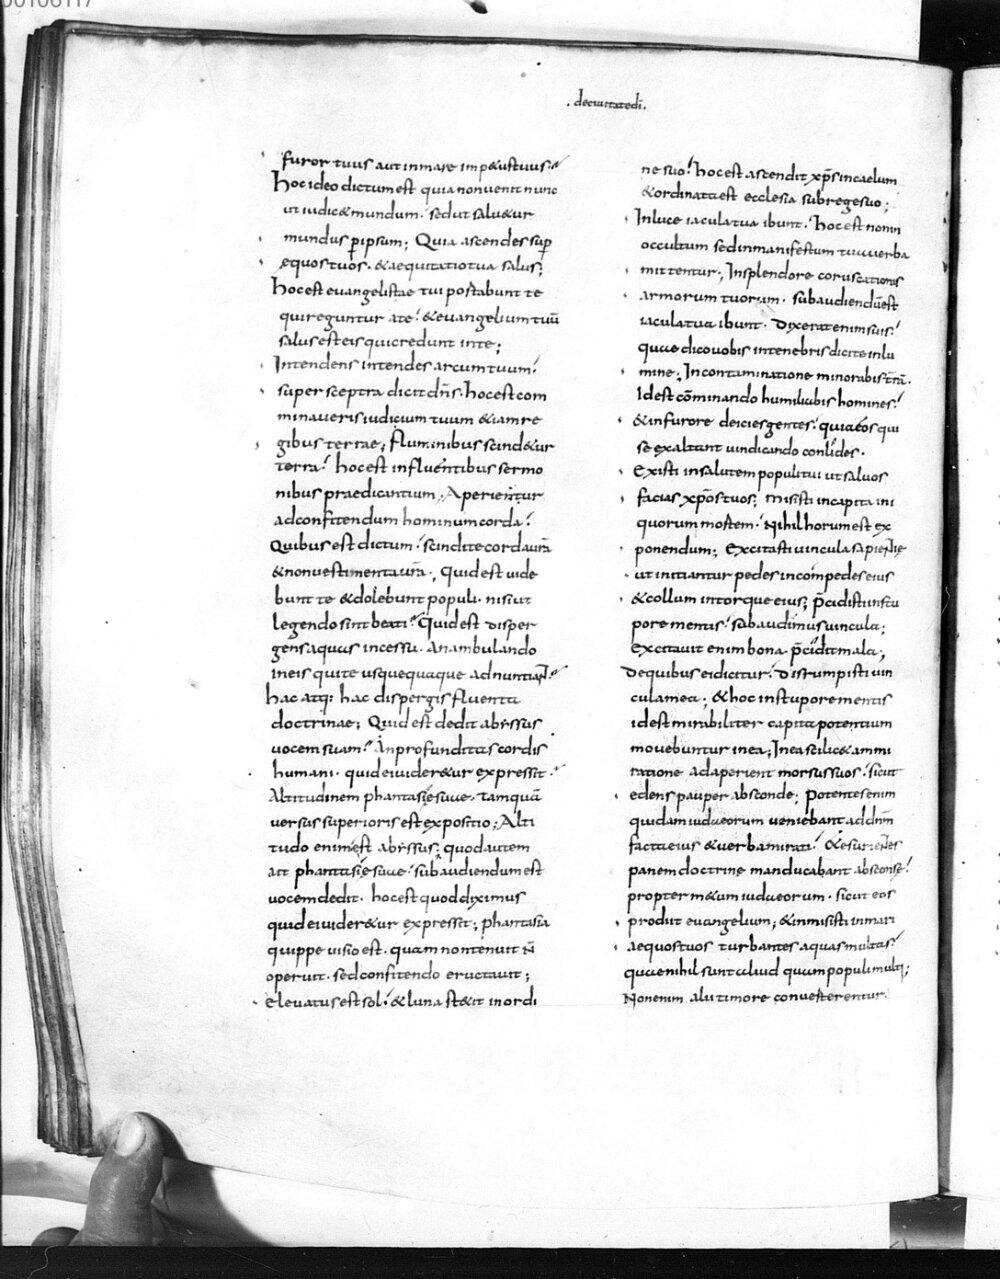 00106117
. deciuitatedi.
furor tuus aut inmare imp&ustuus.
hoc ideo dictum est quia non uenit nunc
ut iudic& mundum. sed ut salu&ur
mundus p ipsum; Quia ascendes sup
equos tuos. & aequitatio tua salus;
hoc est euangelistae tui portabunt te
qui reguntur a te. & euangelium tuū
salus est eis qui credunt in te;
Intendens intendes arcum tuum.
super sceptra dicit dn̄s. hoc est com
minaueris iudicium tuum & iam re
gibus terrae; fluminibus scind&ur
terra. hoc est influentibus sermo
nibus praedicantium. Aperientur
ad confitendum hominum corda.
Quibus est dictum. scindite corda ur̄a
& non uestimenta ur̄a. Quid est uide
bunt te & dolebunt populi. nisi ut
legendo sint beati. Quid est disper
gens aquas incessu. An ambulando
in eis qui te usque quaque adnuntiant.
hac atq: hac dispergis fluenta
doctrinae; Quid est dedit abissus
uocem suam. An profunditas cordis
humani. quid ei uider&ur expressit.
Altitudinem phantasie suae. tamquā
uersus superioris est expositio; Alti
tudo enim est abissus; quod autem
ait phantasie suae. subaudiendum est
uocem dedit. hoc est quod diximus
quid ei uider&ur expressit; phantasia
quippe uisio est. quam non tenuit n̄
operuit. sed confitendo eructauit;
eleuatus est sol. & luna st&it in ordi
ne suo. hoc est ascendit xp̄s in caelum
& ordinata est ecclesia sub rege suo;
In luce iacula tua ibunt. hoc est non in
occultum sed in manifestum tua uerba
mittentur; In splendore coruscationis
armorum tuorum. subaudiendū est
iacula tua ibunt. dixerat enim suis.
quae dico uobis in tenebris dicite in lu
mine; In contaminatione minorabis terrā.
Id est cōminando humiliabis homines.
& in furore deicies gentes. quia eos qui
se exaltant uindicando conlides.
Existi in salutem populi tui ut saluos
facias xp̄os tuos; misisti in capita ini
quorum mortem. Nihil horum est ex
ponendum; Excitasti uincula sapientie
ut initiantur pedes in compede eius
& collum in torque eius; p̄cidisti instu
pore mentis. subaudimus uincula;
excitauit enim bona p̄cidit mala;
De quibus ei dicitur. disrumpisti uin
cula mea; & hoc in stupore mentis
id est mirabiliter capita potentium
mouebuntur in ea; In ea scilic& ammi
ratione adaperient morsus suos. sicut
edens pauper absconde; Potentes enim
quidam iudaeorum ueniebant ad dnm̄
facta eius & uerba mirati. & esurientes
panem doctrine manducabant absconse.
propter m&um iudaeorum. sicut eos
prodit euangelium; & inmisisti in mari
aequos tuos turbantes aquas multas.
quae nihil sunt aliud quam populi multi;
Non enim alii timore conuerterentur.